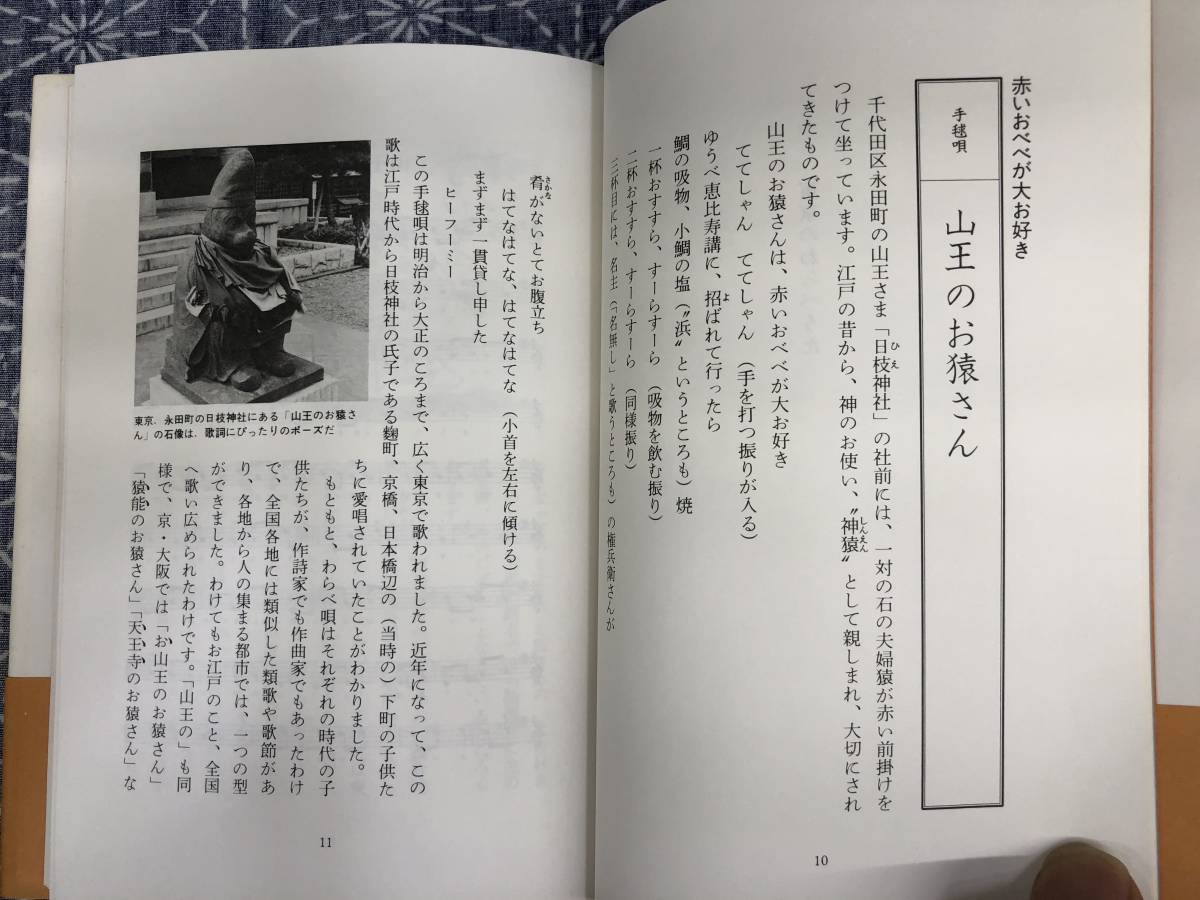 赤いおべべが大お好き
手毬唄
山王のお猿さん
千代田区永田町の山王さま「日枝神社」の社前には、一対の石の夫婦猿が赤い前掛けを
ひえ
つけて坐っています。江戸の昔から、神のお使い、〝神猿〟として親しまれ、大切にされ
しんえん
てきたものです。
山王のお猿さんは、赤いおべべが大お好き
ててしゃん ててしゃん (手を打つ振りが入る)
ゆうべ恵比寿講に、招ばれて行ったら
よ
鯛の吸物、小鯛の塩(〝浜〟というところも)焼
一杯おすすら、すーらすーら (吸物を飲む振り)
二杯おすすら、すーらすーら (同様振り)
三杯目には、名主(「名無し」と歌うところも)の権兵衛さんが
10
肴がないとてお腹立ち
さかな
はてなはてな、はてなはてな (小首を左右に傾ける)
まずまず一貫貸し申した
ヒーフーミー
この手毬唄は明治から大正のころまで、広く東京で歌われました。近年になって、この
歌は江戸時代から日枝神社の氏子である麴町、京橋、日本橋辺の(当時の)下町の子供た
ちに愛唱されていたことがわかりました。
もともと、わらべ唄はそれぞれの時代の子
供たちが、作詩家でも作曲家でもあったわけ
で、全国各地には類似した類歌や歌節があ
り、各地から人の集まる都市では、一つの型
ができました。わけてもお江戸のこと、全国
へ歌い広められたわけです。「山王の」も同
様で、京・大阪では「お山王のお猿さん」
「猿能のお猿さん」「天王寺のお猿さん」な
東京.永田町の日枝神社にある「山王のお猿さ
ん」の石像は.歌詞にぴったりのポーズだ
11